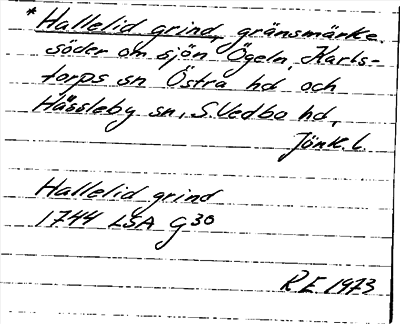 *Hallelid grind, gränsmärke
söder om sjön Ögeln, Karls-
torps sn Östra hd och
Hässleby sn, S. Vedbo hd,
Jönk. l.
Hallelid grind
1744 LSA G 30
R E 1973